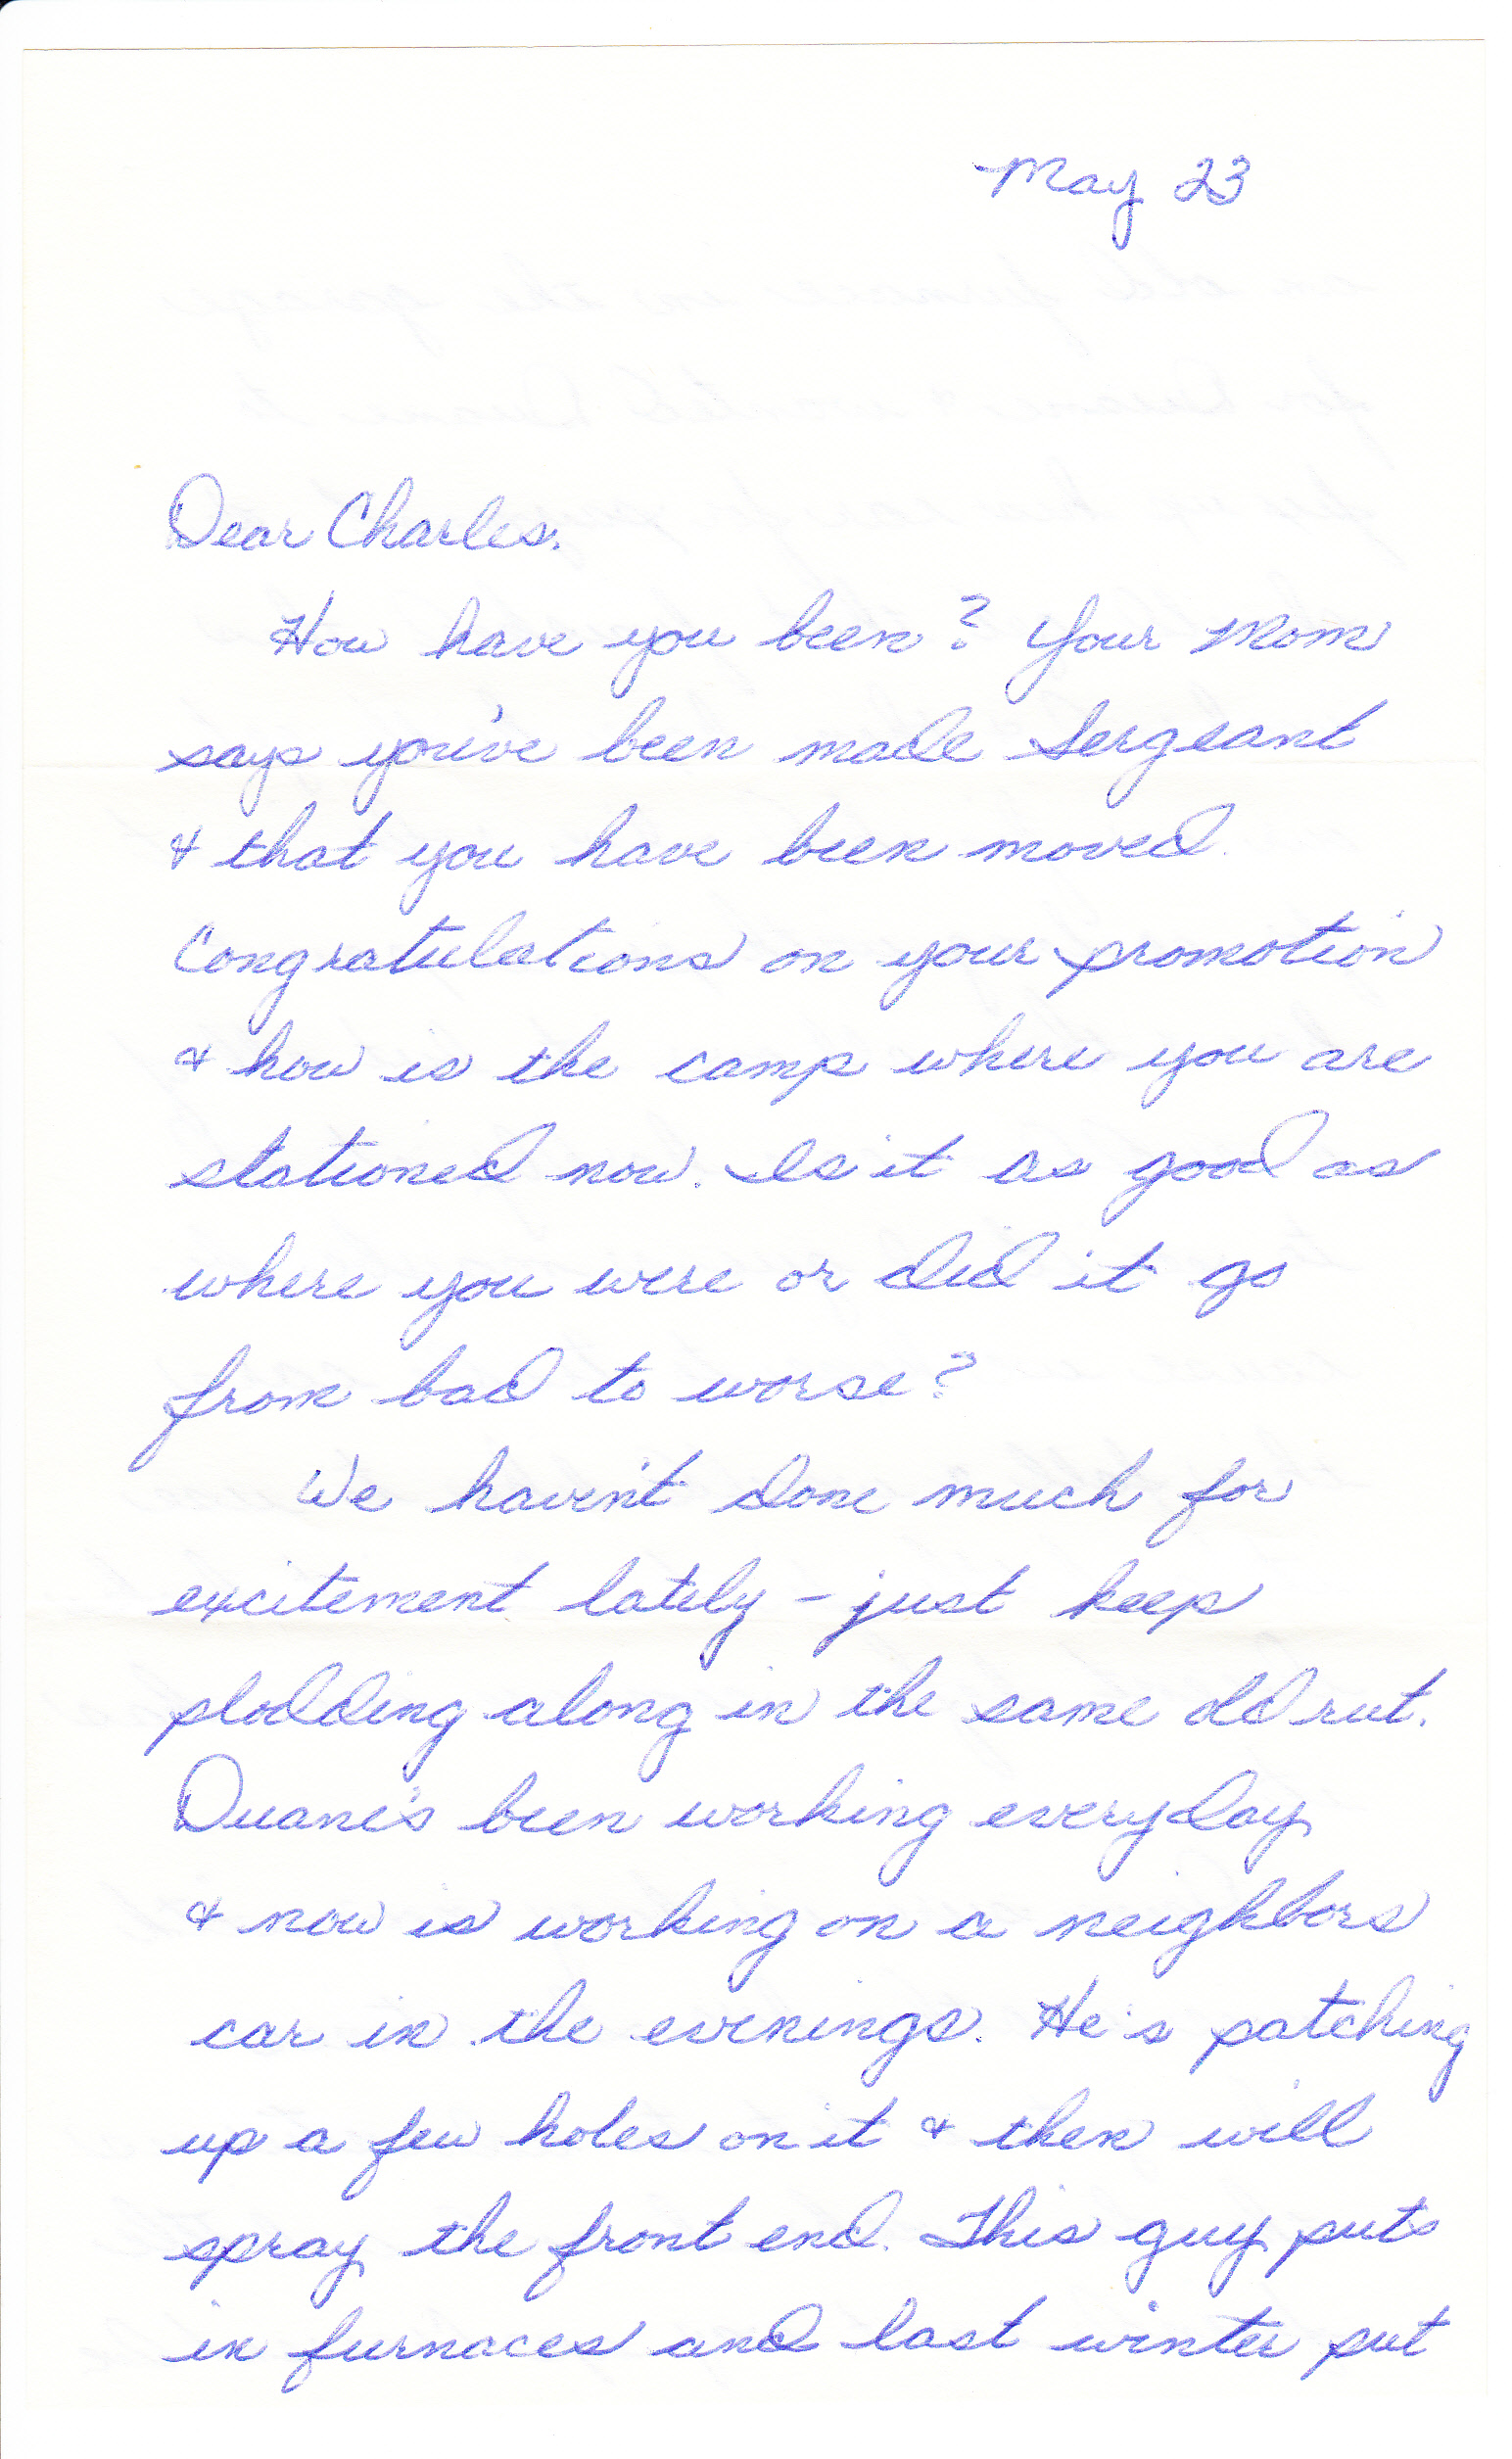 May 23
Dear Charles,
How have you been? Your Mom
says you've been made Sergeant
& that you have been moved.
Congratulations on your promotion
& how is the camp where you are
stationed now. Is it as good as
where you were or did it go
from bad to worse?
We haven't done much for
excitement lately - just keep
plodding along in the same old rut.
Duane's been working everyday
& now is working on a neighbors
car in the evenings. He's patching
up a few holes on it & then will
spray the front end. This guy puts
in furnaces and last winter put